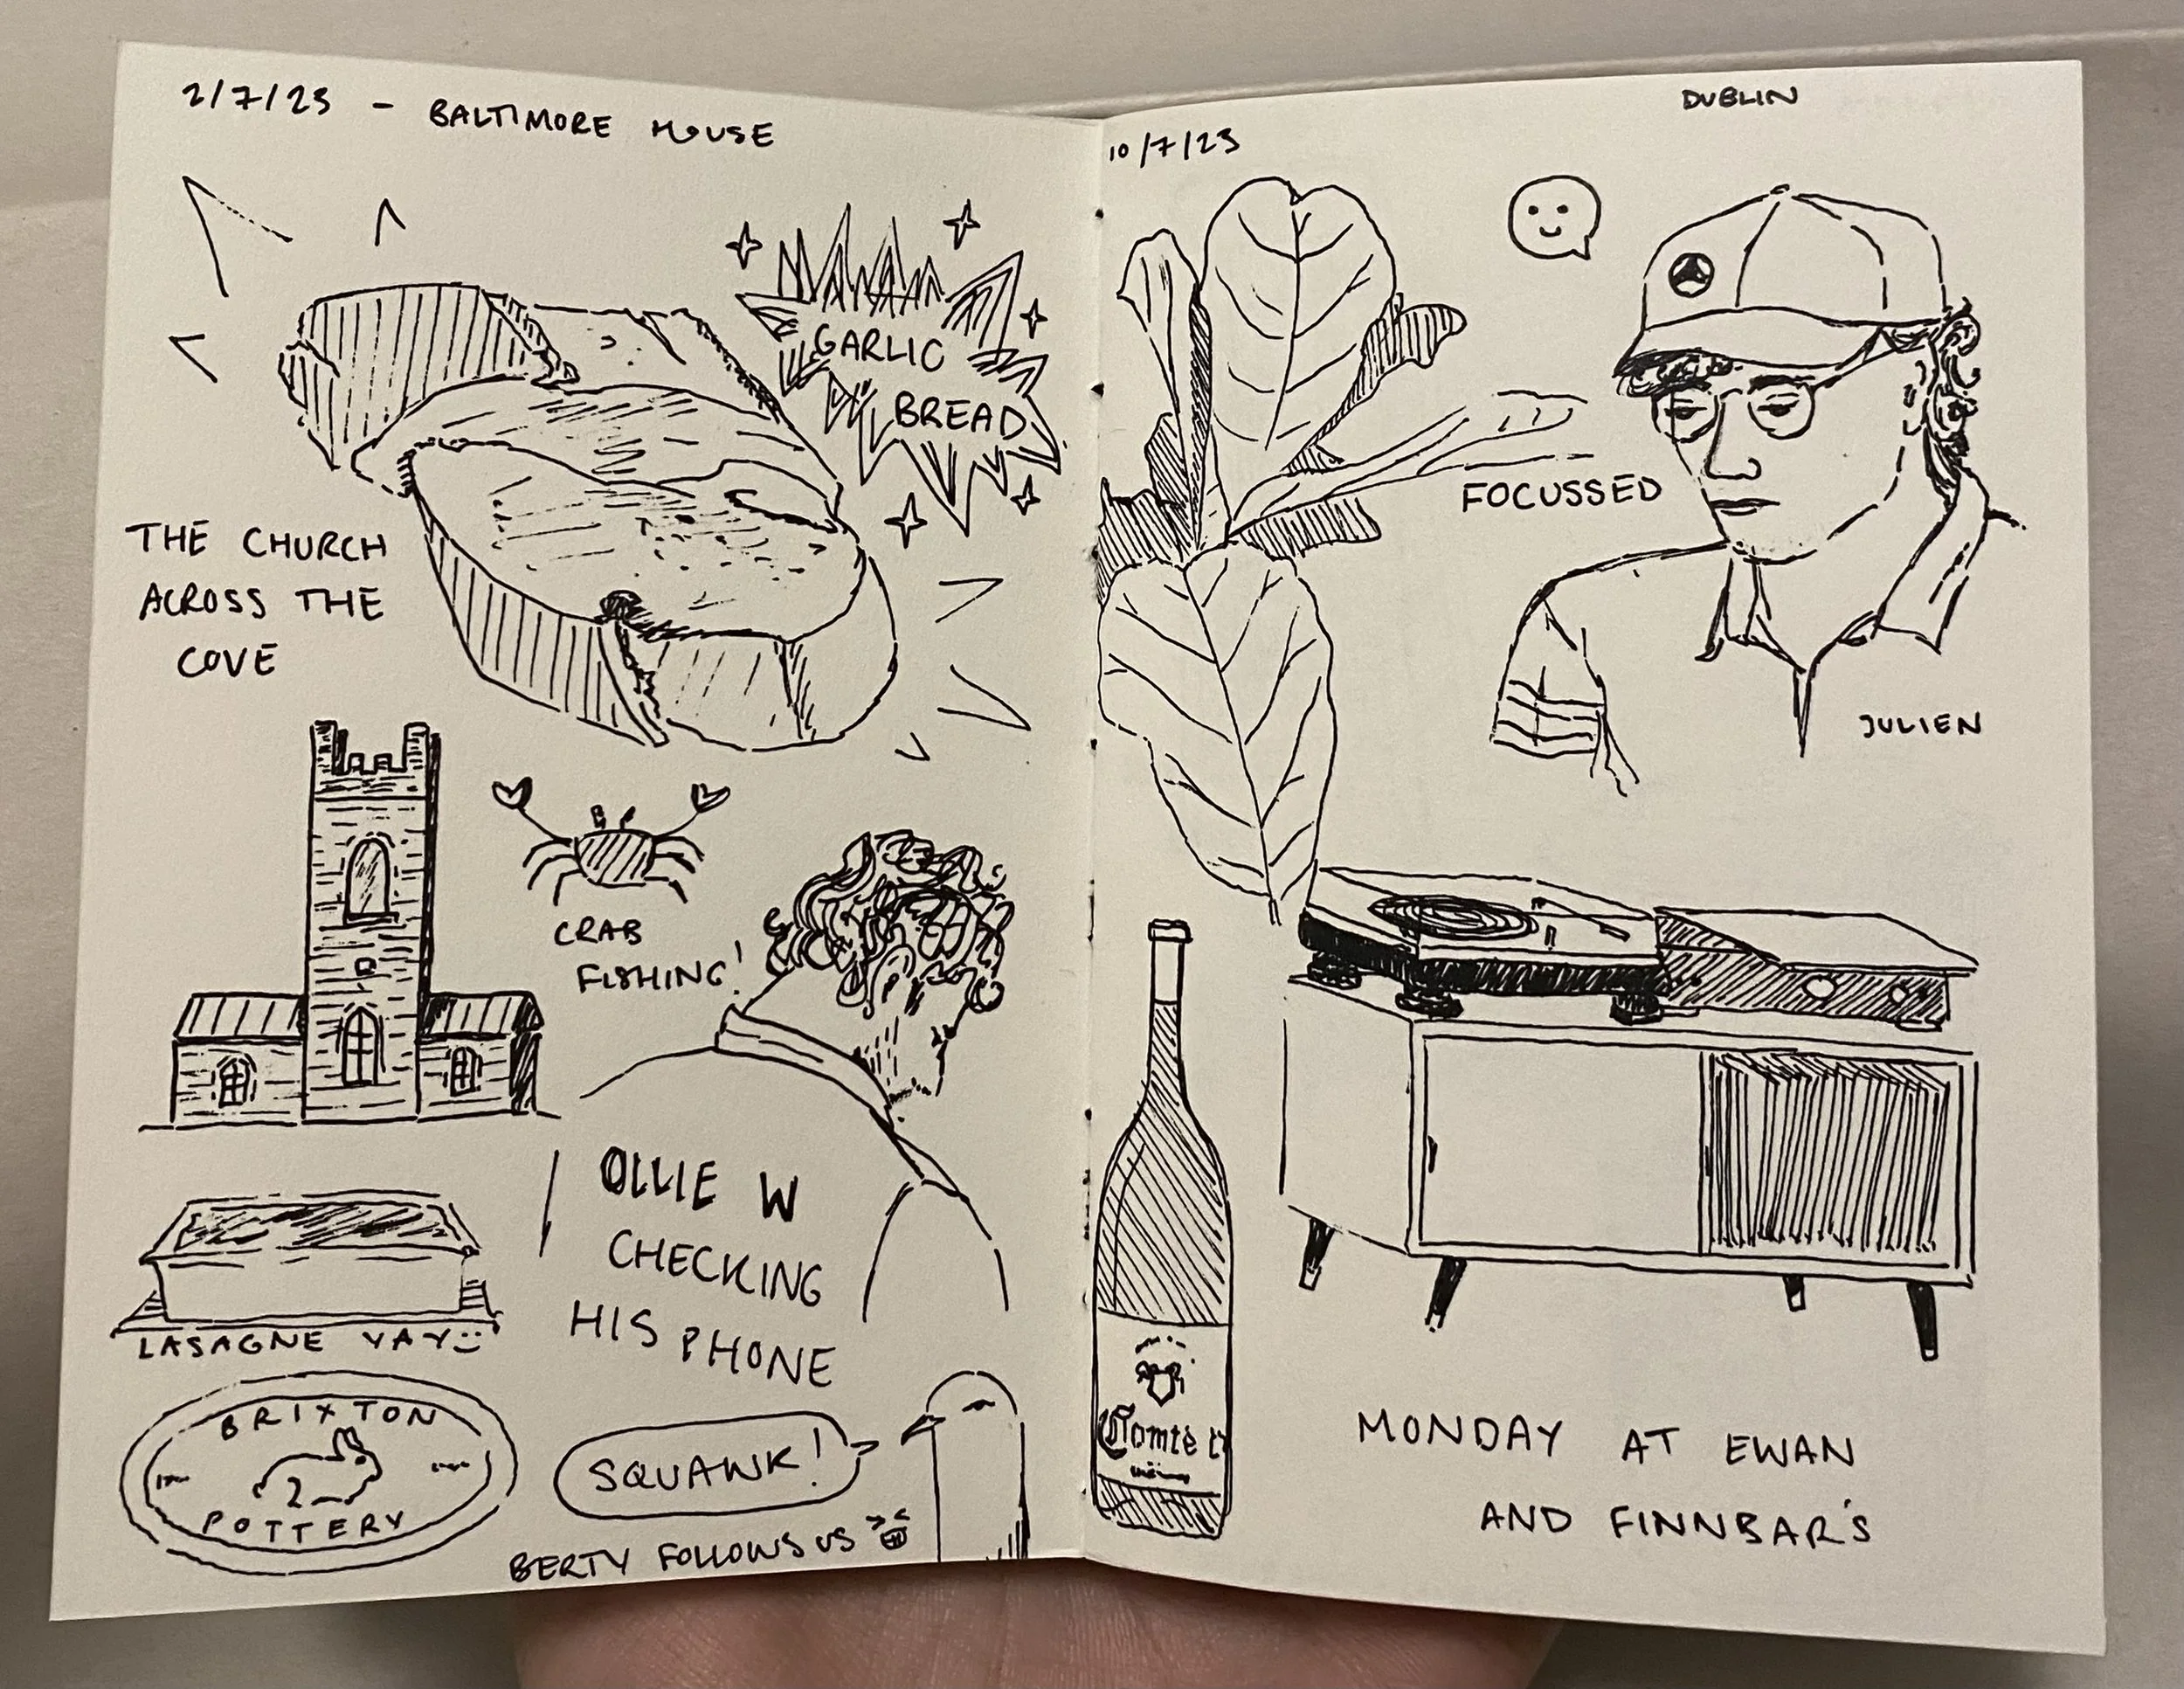 2/7/23 - BALTIMORE HOUSE
GARLIC
BREAD
THE CHURCH
ACROSS THE
COVE
CRAB
FISHING!
OLLIE W
CHECKING
HIS PHONE
LASAGNE YAY
BRIXTON
POTTERY
SQUAWK!
BERTY FOLLOWS US
10/7/23
DUBLIN
FOCUSSED
JULIEN
Comte
MONDAY AT EWAN
AND FINNBAR'S